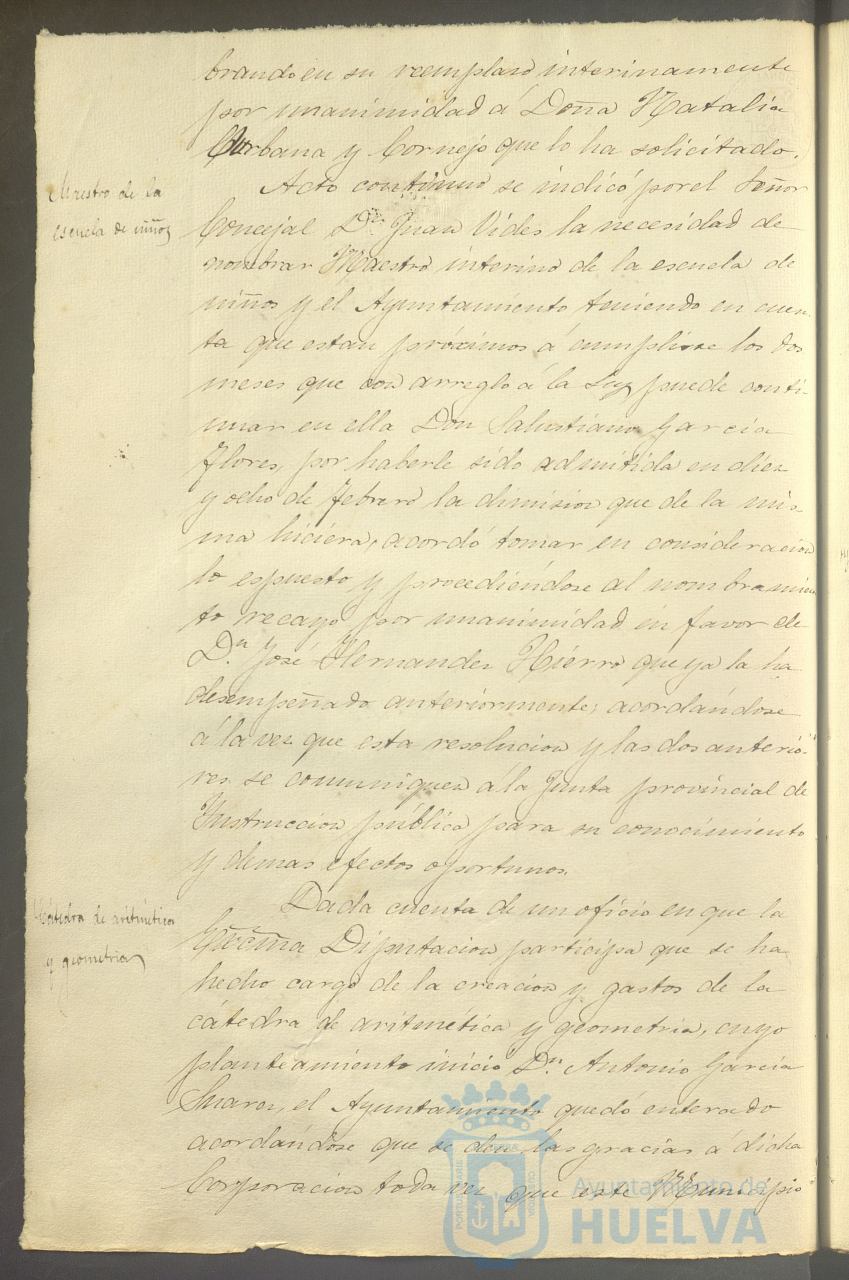 brando en su reemplazo interinamente
por unanimidad á Doña Natalia
Urbana y Cornejo que lo ha solicitado.
Maestro de la
escuela de niños
Acto continuo se indicó por el Señor
Concejal Dn. Juan Vides la necesidad de
nombrar Maestro interino de la escuela de
niños y el Ayuntamiento teniendo en cuen-
ta que estan próximos á cumplirse los dos
meses que con arreglo á la Ley puede conti-
nuar en ella Don Salustiano Garcia
Flores, por haberle sido admitida en diez
y ocho de febrero la dimision que de la mis-
ma hiciera, acordó tomar en consideracion
lo espuesto y procediéndose al nombramien-
to recayó por unanimidad en favor de
Dn. José Hernandez Hierro que ya la ha
desempeñado anteriormente; acordándose
á la vez que esta resolucion y las dos anterio-
res se comuniquen á la Junta provincial de
Instruccion pública para su conocimiento
y demas efectos oportunos.
Cátedra de aritmética
y geometria
Dada cuenta de un oficio en que la
Diputacion participa que se ha
hecho cargo de la creacion y gastos de la
cátedra de aritmética y geometria, cuyo
planteamiento inició Dn. Antonio Garcia
Suarez, el Ayuntamiento quedó enterado
acordándose que se den las gracias á dicha
Corporacion toda vez que este Municipio
Ayuntamiento de
HUELVA